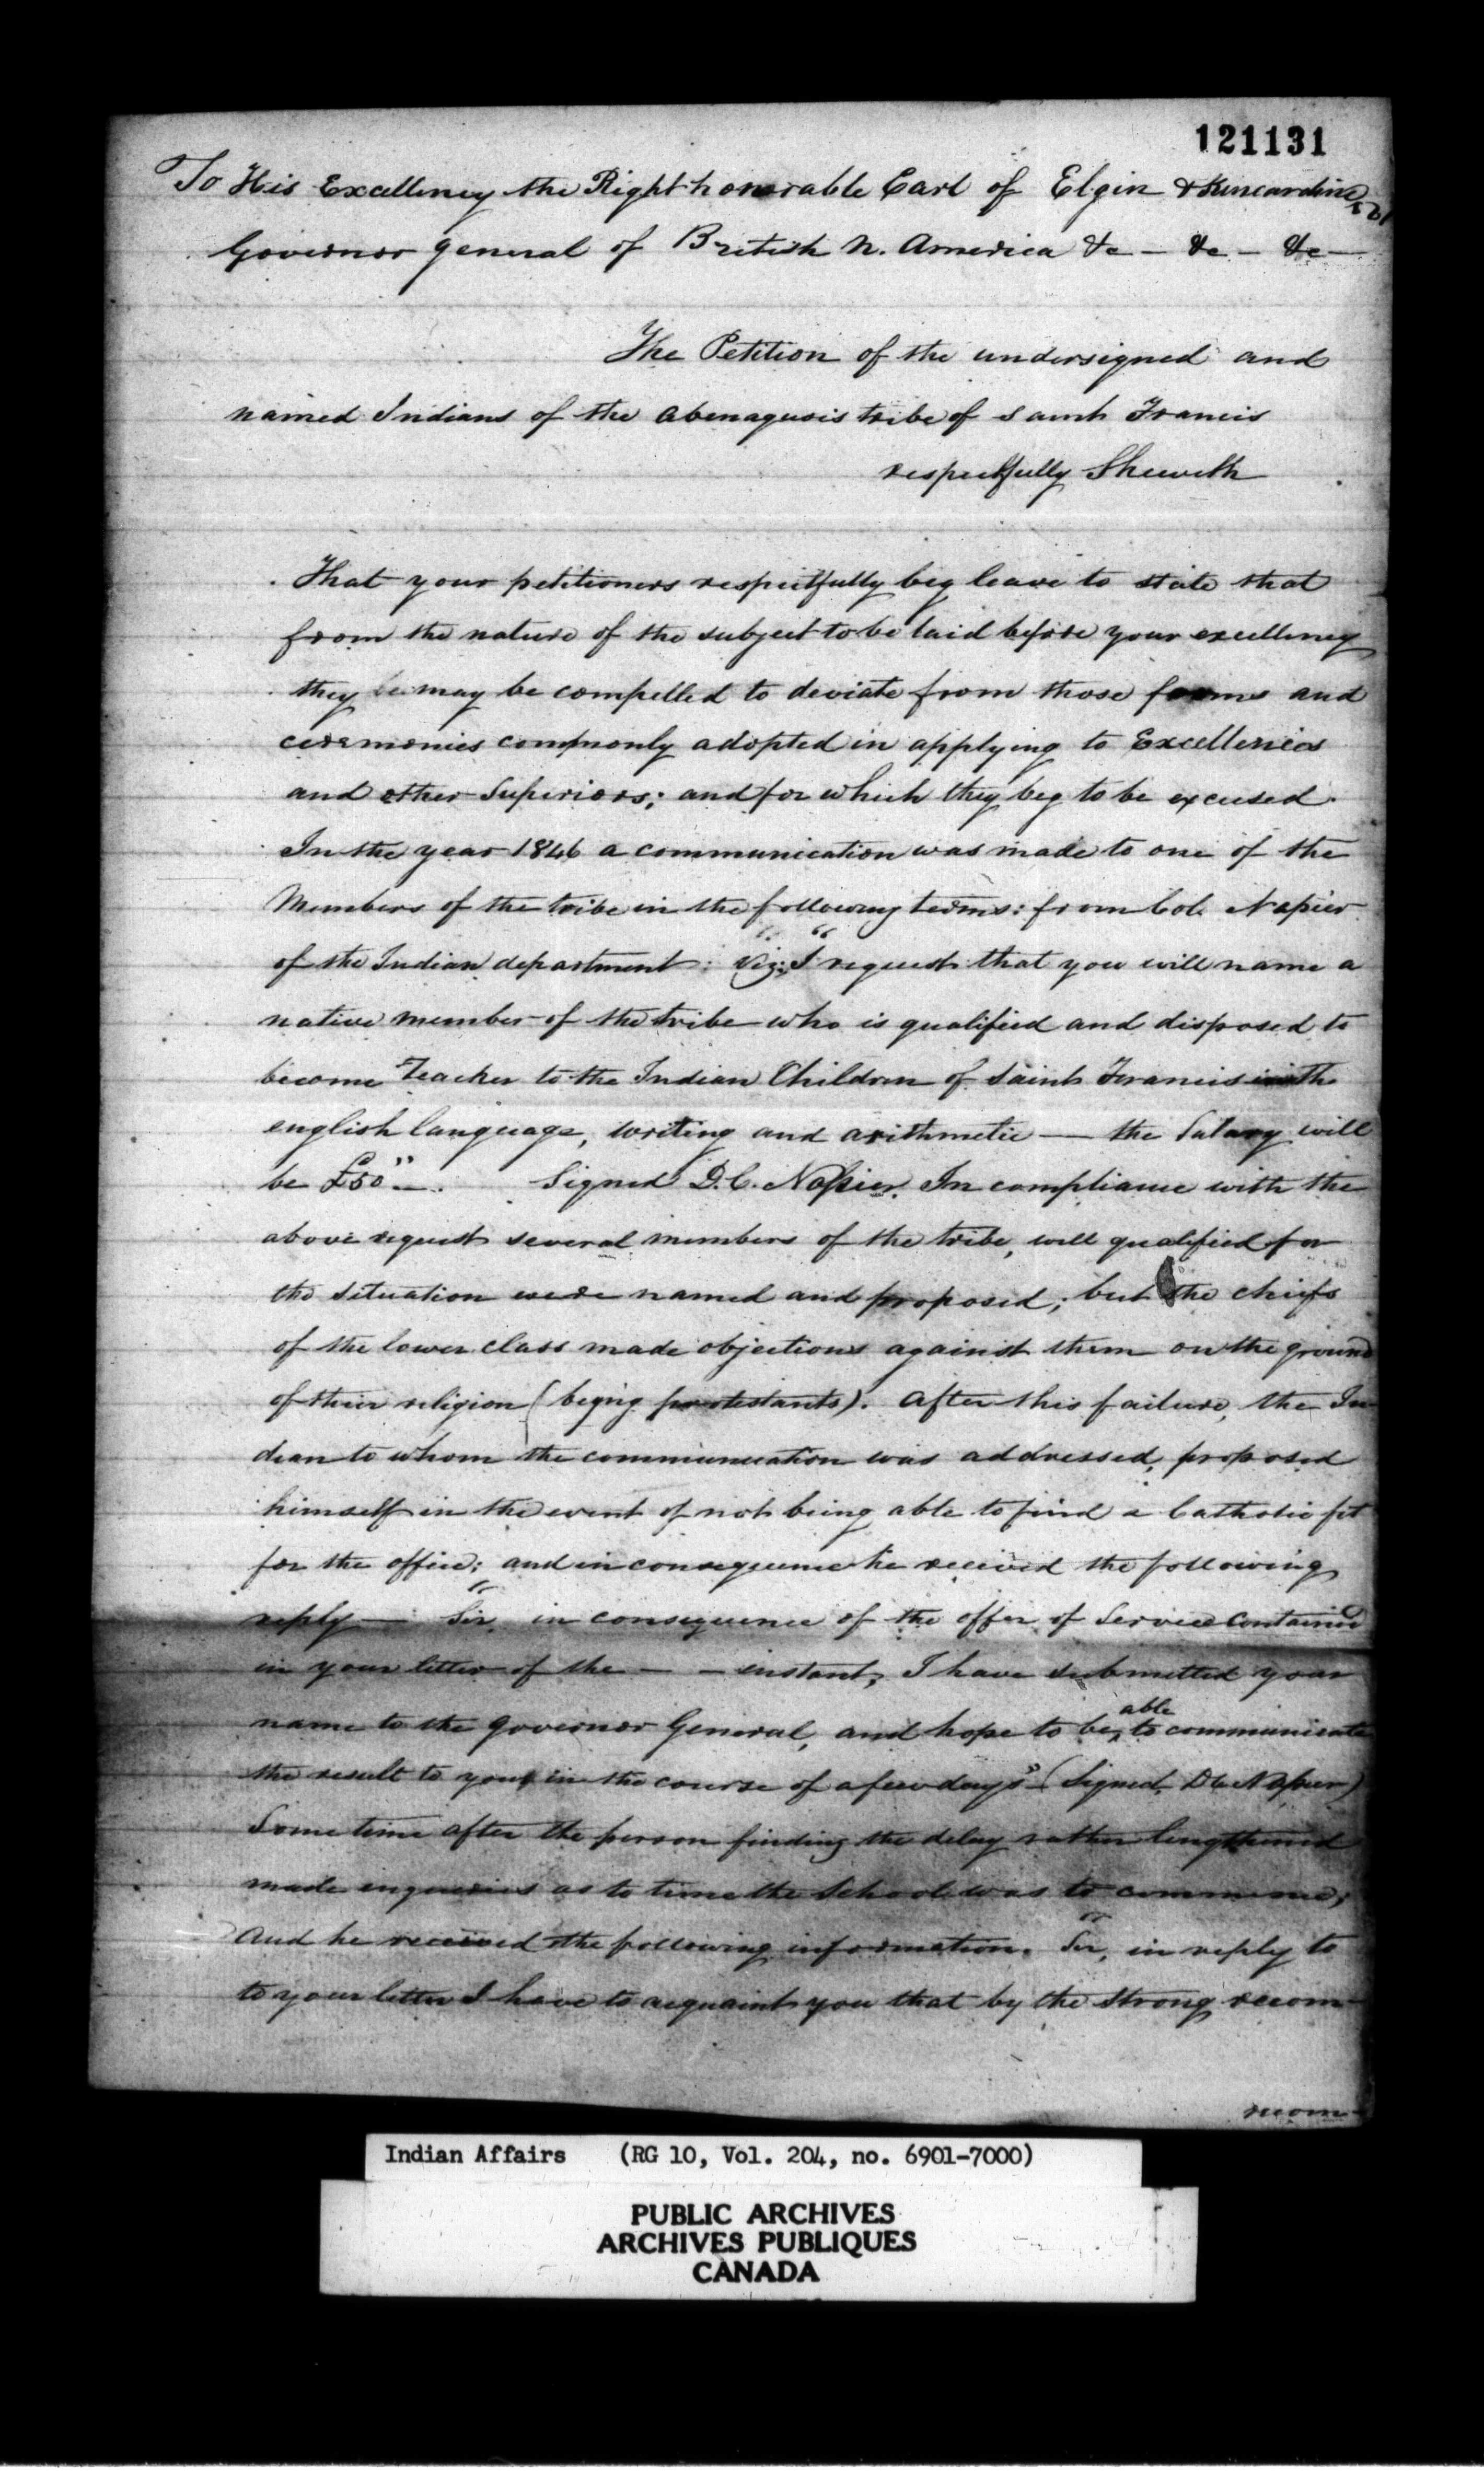 121131
To His Excellency the Right honorable Earl of Elgin & Kincardine
Governor general of British N. America &c - &c - &c -
The Petition of the undersigned and
named Indians of the abenaquois tribe of saint Francis
respectfully Sheweth
That your petitioners respectfully beg leave to state that
from the nature of the subject to be laid before your excellency
they may be compelled to deviate from those forms and
ceremonies commonly adopted in applying to Excellencies
and other Superiors; and for which they beg to be excused.
In the year 1846 a communication was made to one of the
Members of the tribe in the following terms: from Col. Napier
of the Indian department: Viz: "I request that you will name a
native member of the tribe who is qualified and disposed to
become Teacher to the Indian Children of Saint Francis in the
english language, writing and arithmetic — the Salary will
be £50"—. Signed D.C. Napier. In compliance with the
above request several members of the tribe, well qualified for
the situation were named and proposed; but the chiefs
of the lower class made objections against them on the ground
of their religion (being protestants). After this failure, the In-
dian to whom the communication was addressed, proposed
himself in the event of not being able to find a Catholic fit
for the office; and in consequence he received the following
reply — "Sir, in consequence of the offer of Service contained
in your letter of the — - instant, I have submitted your
name to the governor General, and hope to be able to communicate
the result to you in the course of a few days" (Signed, D C Napier)
Some time after the person finding the delay rather lengthened
made enquiries as to time the School was to commence;
and he received the following information. "Sir, in reply to
to your letter I have to acquaint you that by the strong recom-
recom-
Indian Affairs (RG 10, Vol. 204, no. 6901-7000)
PUBLIC ARCHIVES
ARCHIVES PUBLIQUES
CANADA